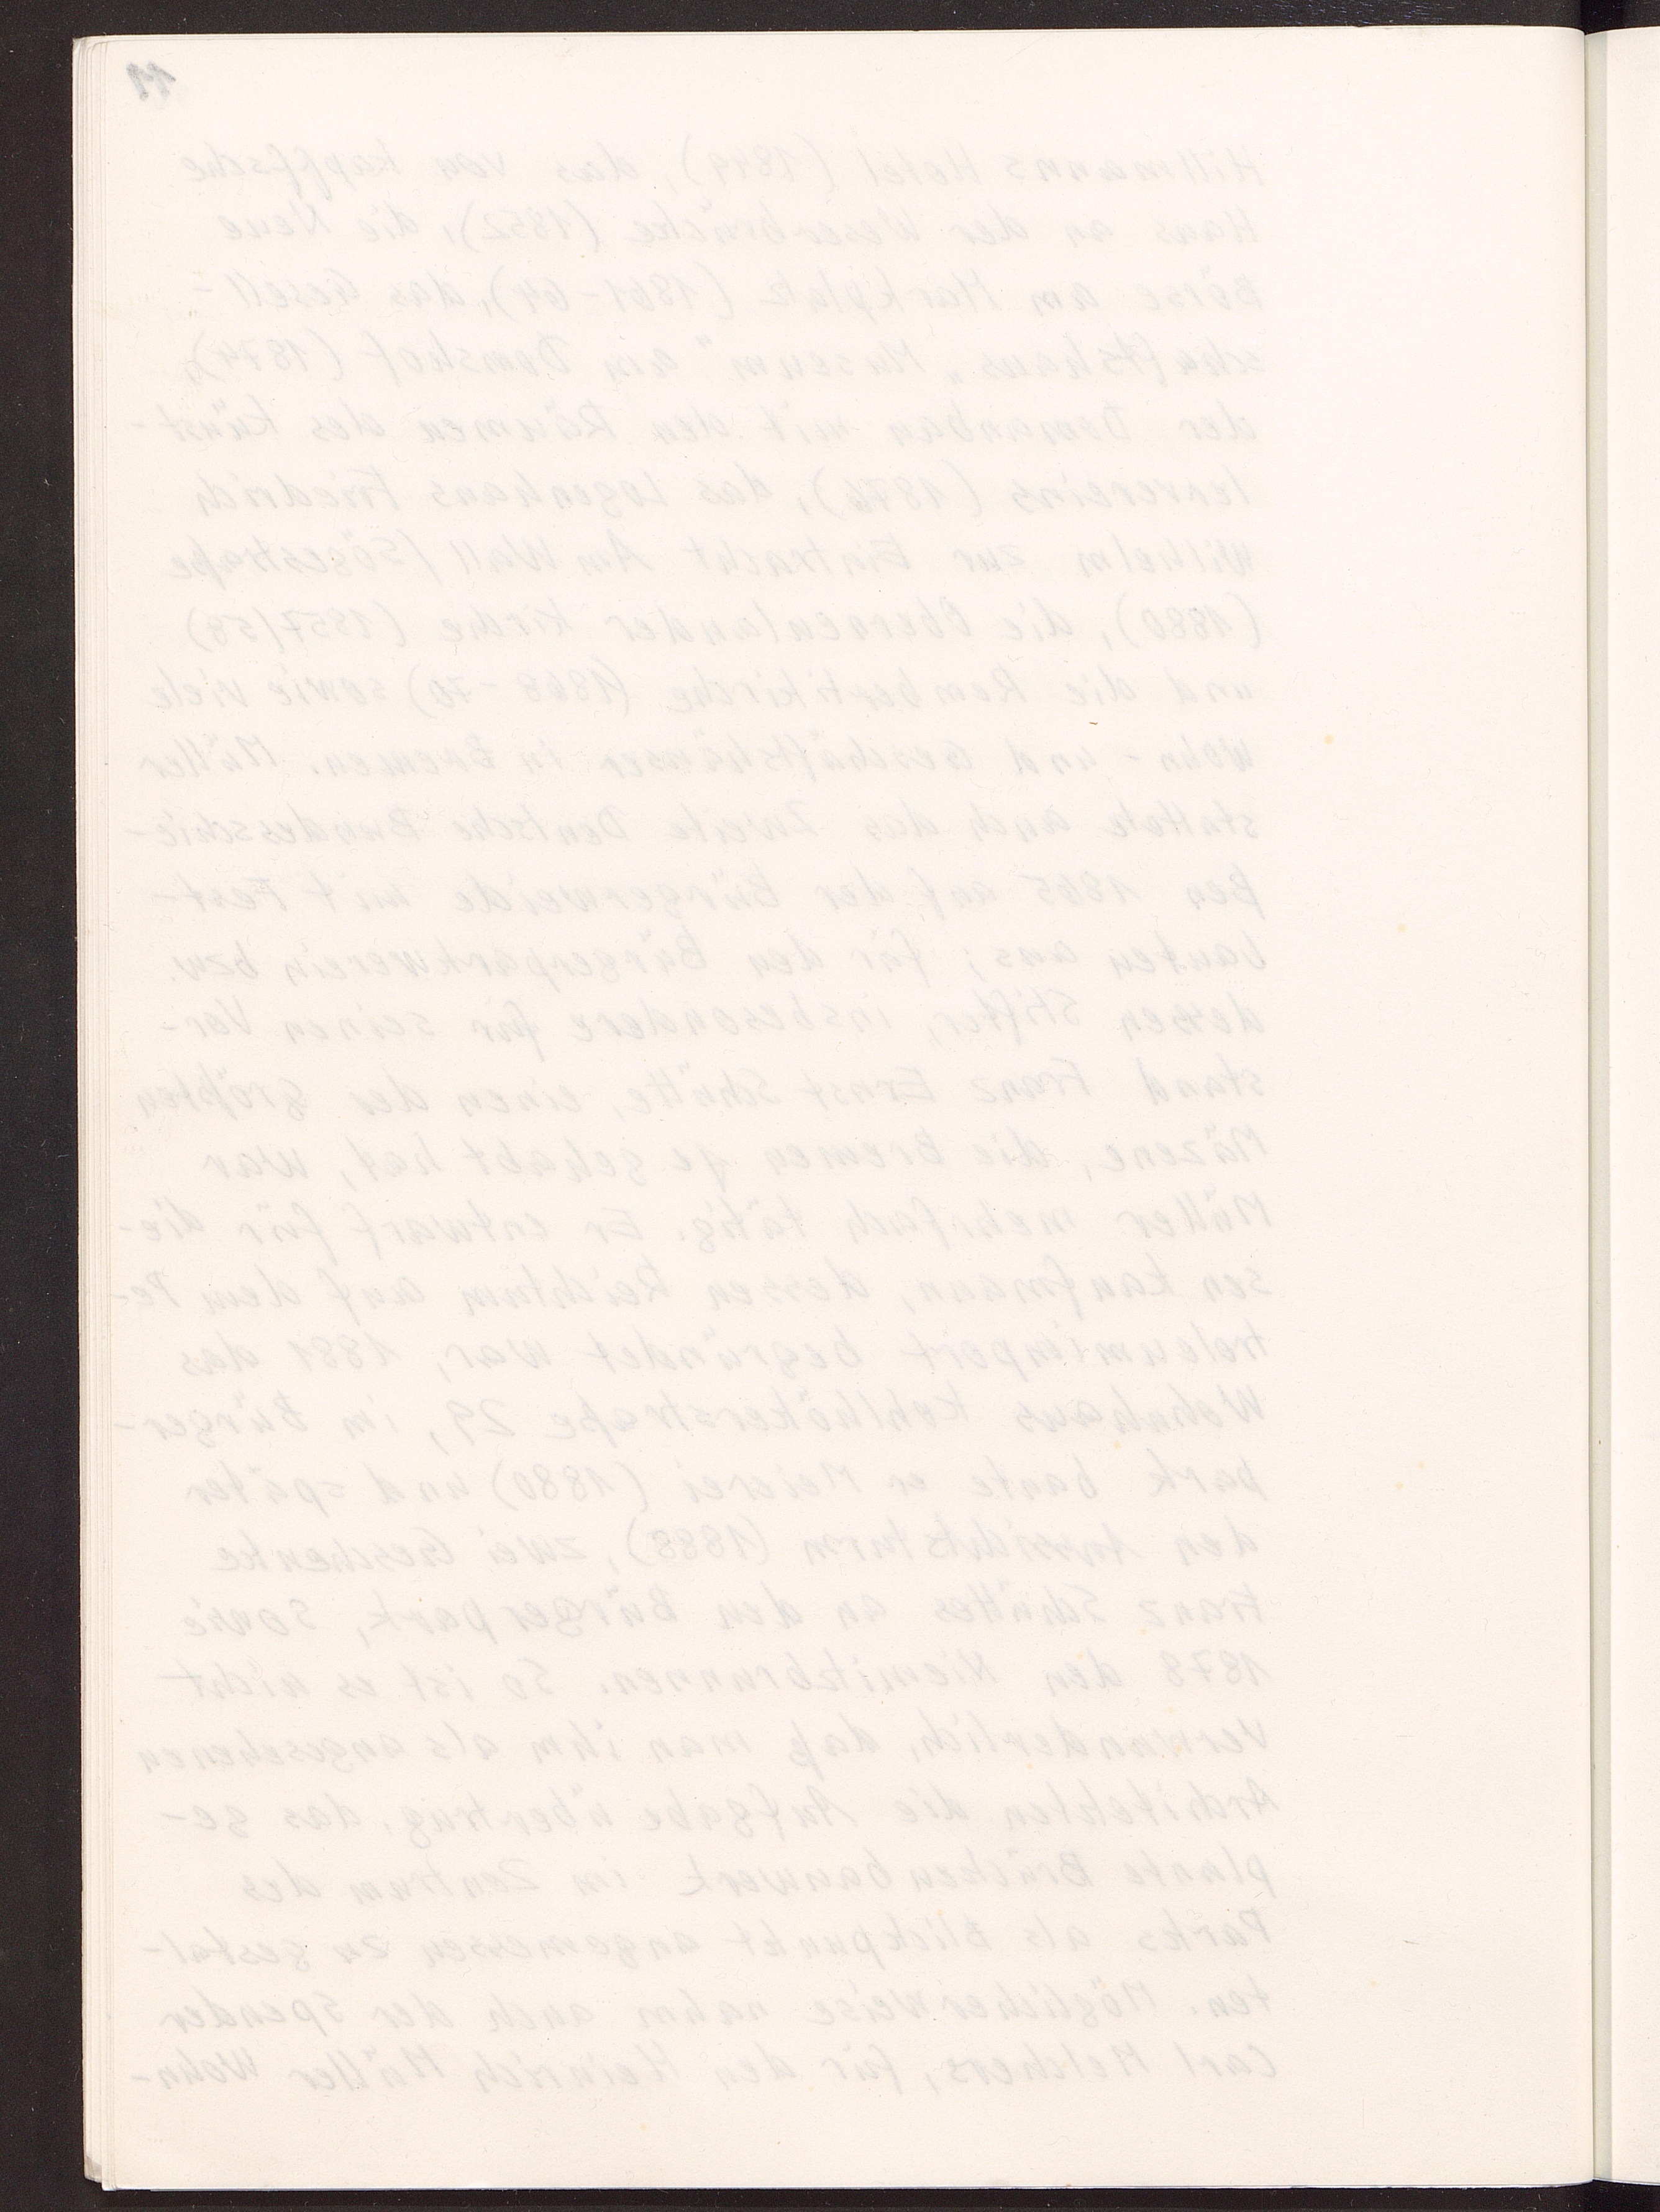 11
Hillmanns Hotel (1847), das von Kapffsche
Haus an der Weserbrücke (1852), die Neue
Börse am Marktplatz (1861-64), das Gesell-
schaftshaus „Museum" am Domshof (1874),
der Domanbau mit den Räumen des Künst-
lervereins (1876), das Logenhaus Friedrich
Wilhelm zur Eintracht Am Wall/Sögestraße
(1880), die Oberneulander Kirche (1857/58)
und die Rembertikirche (1868-70) sowie viele
Wohn- und Geschäftshäuser in Bremen. Müller
stattete auch das Zweite Deutsche Bundesschie-
ßen 1865 auf der Bürgerweide mit Fest-
bauten aus; für den Bürgerparkverein bzw.
dessen Stifter, insbesondere für seinen Vor-
stand Franz Ernst Schütte, einen der größten
Mäzene, die Bremen je gehabt hat, war
Müller mehrfach tätig. Er entwarf für die-
sen Kaufmann, dessen Reichtum auf dem Pe-
troleumimport begründet war, 1881 das
Wohnhaus Kohlhökerstraße 29, im Bürger-
park baute er Meierei (1880) und später
den Aussichtsturm (1888), zwei Geschenke
Franz Schüttes an den Bürgerpark, sowie
1878 den Niemitzbrunnen. So ist es nicht
verwunderlich, daß man ihm als angesehenen
Architekten die Aufgabe übertrug, das ge-
plante Brückenbauwerk im Zentrum des
Parks als Blickpunkt angemessen zu gestal-
ten. Möglicherweise nahm auch der Spender
Carl Melchers, für den Heinrich Müller Wohn-